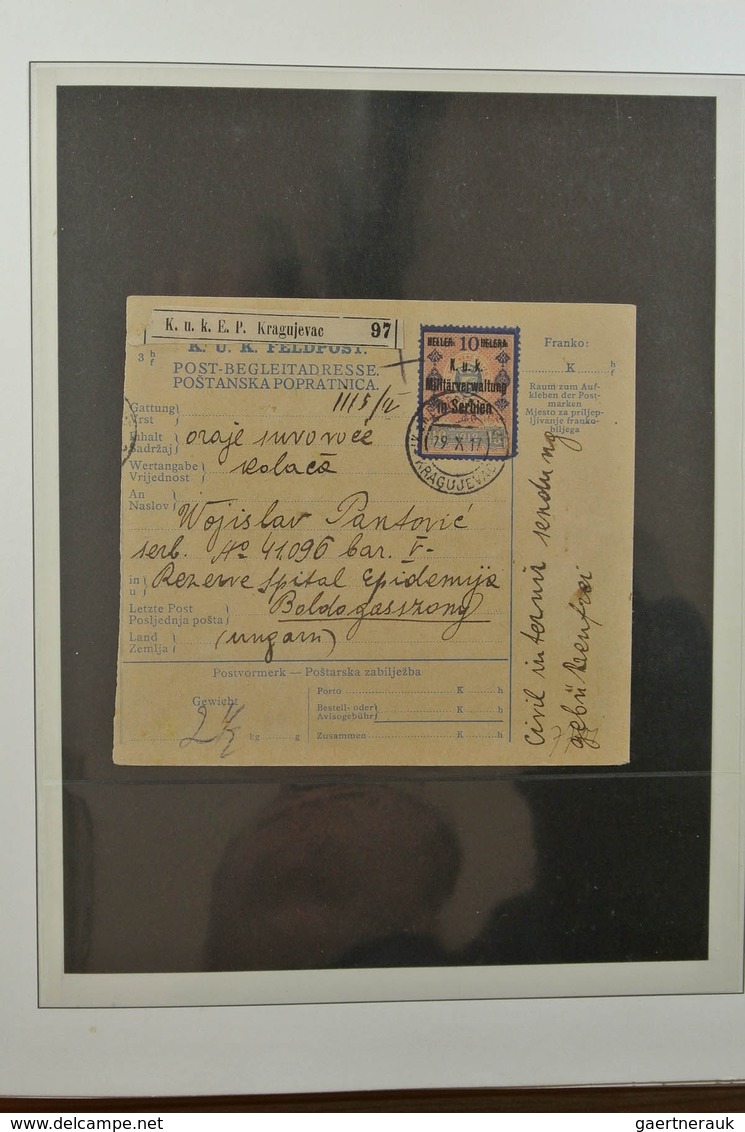 K. u. k. E. P. Kragujevac 97
K. U. K. FELDPOST.
3 h/f
POST-BEGLEITADRESSE.
POŠTANSKA POPRATNICA.
HELLER 10 HELERA
K. u. k.
Militärverwaltung
in Serbien
29 X 17
KRAGUJEVAC
Franko:
K h/f
Raum zum Auf-
kleben der Post-
marken
Mjesto za priljep-
ljivanje franko-
biljega
Gattung
Vrst
Inhalt
Sadržaj
Wertangabe
Vrijednost
kolača
An
Naslov
Wojislav Pantović
serb. No 41.096 bar. V-
in
u
Rezerve Spital Epidemija
Letzte Post
Posljednja pošta
Boldogasszony
Land
Zemlja
(Ungarn)
Postvormerk — Poštarska zabilježba
Gewicht
2 1/2 kg g
Porto K h
Bestell- oder
Avisogebühr K h
Zusammen K h
Civil internir sendung
gebürenfrei
gaertnerauk